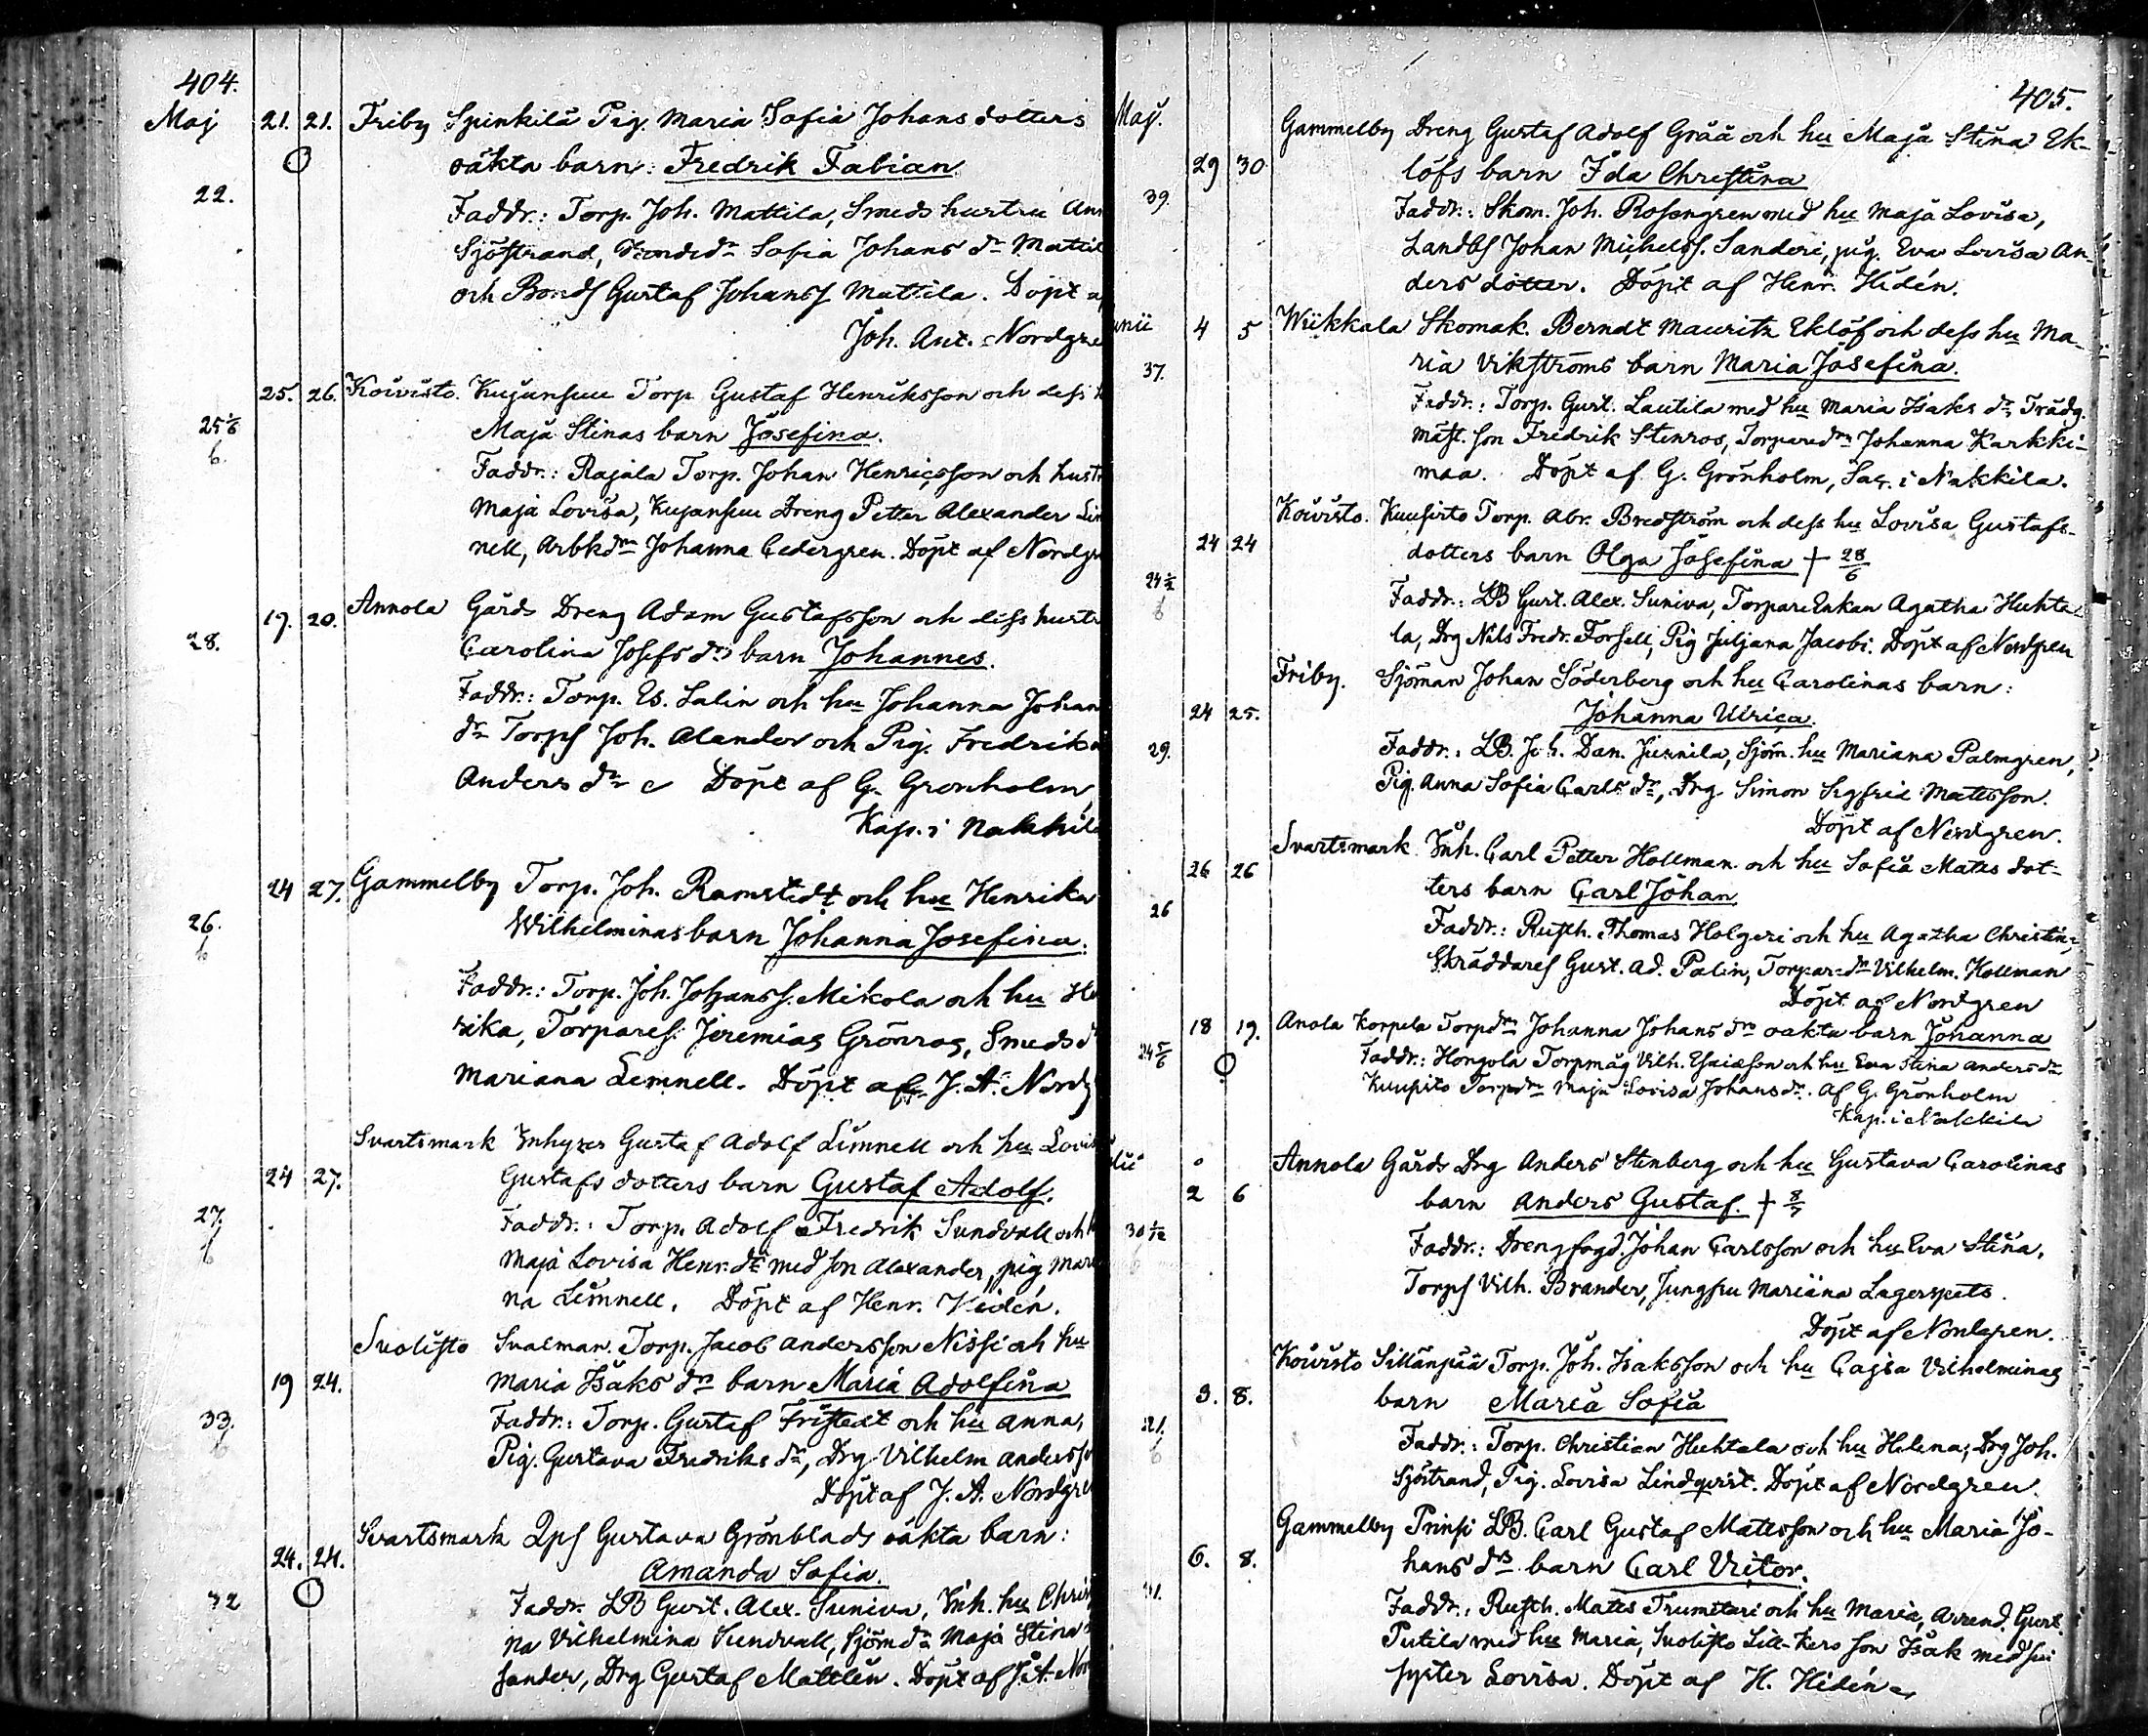 404.
Maj 21. 21. Friby Spinkilä Pig. Maria Sofia Johans dotters
oäkta barn: Fredrik Fabian
22. Faddr.: Torp. Joh. Mattila, Smeds hustru
Sjöstrand, Sofia Johans dr
och Bonds Gustaf Johanss Mattila. Döpt
Joh. Ant.
25. 26. Koivisto. Kujansuu Torp Gustaf Henriksson och dess
Maja Stinas barn Josefina.
Faddr.: Rajala Torp. Johan Henricsson och
Maja Lovisa, Kujansuu Dreng Petter Alexander
nell, Arbkdrn Johanna Cedergren. Döpt af
19. 20. Annola Gårds Dreng Adam Gustafsson och dess
28. Carolina Josefs drs barn Johannes.
Faddr.: Torp. Es. Salin och hu Johanna
dr Torps Joh. Alander och Pig.
Anders dr Döpt af G. Grönholm,
Kap. i
24 27. Gammelby Torp. Joh. Ramstedt och hu Henrika
26. Wilhelminas barn Johanna Josefina.
Faddr.: Torp. Joh. Johanss. Mikola och hu
rika, Torpares. Jeremias Grönros, Smeds
Mariana Lemnell. Döpt af J. A.
Svartsmark Inhyses Gustaf Adolf Limnell och hu
24 27. Gustafs dotters barn Gustaf Adolf.
27. Faddr.: Torp. Adolf Fredrik Sundvall och
Maja Lovisa Henr. dr med son Alexander, pig
na Limnell. Döpt af Henr. Hidén.
Suolisto Svalman. Torp. Jacob Andersson Nissi och hu
19 24. Maria Isaks drs barn Maria Adolfina
33. Faddr.: Torp. Gustaf Fristedt och hu Anna,
Pig. Gustava Fredriks dr, Drg Vilhelm
Döpt af J. A.
Svartsmark Qps Gustava Grönblads oäkta barn:
24. 24. Amanda Sofia.
32 Faddr. LB Gust. Alex. Suniva, Inh. hu
na Vilhelmina Sundvall, Sjömdr Maja
sander, Drg Gustaf Mattlin. Döpt af J. A.
405.
Maj. Gammelby Dreng Gustaf Adolf Gråå och hu Maja Stina Ek-
29 30 löfs barn Ida Christina
39. Faddr.: Skom. Joh. Rosengren med hu Maja Lovisa,
Landbs Johan Michelss. Sanderi, pig. Eva Lovisa An-
ders dotter. Döpt af Henr. Hidén.
4 5 Wiikkala Skomak. Berndt Mauritz Eklöf och dess hu Ma-
37. ria Vikströms barn Maria Josefina.
Faddr.: Torp. Gust. Lautila med hu Maria Isaks dr, Trädg.
mäst. son Fredrik Stenros, Torparedrn Johanna Karkki-
maa. Döpt af G. Grönholm, Sac. i Nakkila.
Koivisto. Kuusisto Torp. Abr. Bredström och dess hu Lovisa Gustafs-
24 24 dotters barn Olga Josefina † 28/6
Faddr.: LB Gust. Alex. Suniva, Torpare Enkan Agatha Huhta-
la, Drg Nils Fredr. Forsell, Pig Juljana Jacobi. Döpt af Nordgren
Friby. Sjöman Johan Söderberg och hu Carolinas barn:
24 25. Johanna Ulrica.
29. Faddr.: LB. Joh. Dan. Sjöm. hu Mariana Palmgren,
Pig. Anna Sofia Carls dr, Drg Simon Sigfrid Matsson.
Döpt af Nordgren.
Svartsmark. Inh. Carl Petter Hollman och hu Sofia Mats dot-
26 26 ters barn Carl Johan.
26 Faddr.: Rusth. Thomas Holgeri och hu Agatha Christin,
Skräddares Gust. Ad. Palin, Torpar-dr Vilhelm. Hollman
Döpt af Nordgren
18 19. Anola Korpela Torpdrn Johanna Johans drs oakta barn Johanna
Faddr.: Hongola Torpmåg Vilh. Esaiasson och hu Eva Stina Anders dr
Kuusisto Torpdrn Maja Lovisa Johans dr. Af G. Grönholm
Kap. i Nakkila
Annola Gårds Drg Anders Stenberg och hu Gustava Carolinas
2 6 barn Anders Gustaf. † 8/7
Faddr.: Drengfogd. Johan Carlsson och hu Eva Stina,
Torps Vilh. Brander, Jungfru Mariana Lagerspets.
Döpt af Nordgren.
Koivisto Sillänpää Torp. Joh. Isaksson och hu Cajsa Vilhelminas
3. 8. barn Maria Sofia
21. Faddr.: Torp. Christian Huhtala och hu Helena, Drg Joh.
Sjöstrand, Pig. Lovisa Lindqvist. Döpt af Nordgren.
Gammelby Prinsi LB. Carl Gustaf Matsson och hu Maria Jo-
6. 8. hans drs barn Carl Victor.
Faddr.: Rusth. Mats Trumetari och hu Maria, Arrend. Gust.
Putila med hu Maria, Suolisto son Isak med sin
syster Lovisa. Döpt af H. Hidén